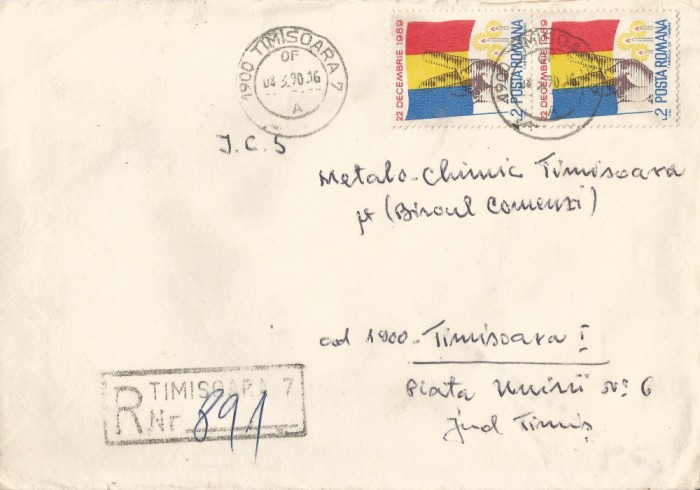 1900 TIMISOARA 7
OF
08 3.90.16
A
22 DECEMBRIE 1989
L2 POSTA ROMANA
22 DECEMBRIE 1989
L2 POSTA ROMANA
I.C.S
Metalo-Chimic Timisoara
pt (Biroul Comenzi)
cod 1900 - Timisoara I
Piata Unirii No 6
jud Timiș
TIMISOARA 7
R Nr. 891